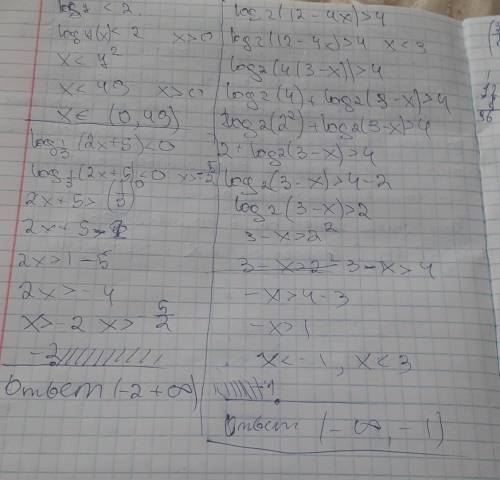 log₇ < 2
log₇(x) < 2 x>0
x < 7²
x < 49 x>0
x ∈ (0,49)
log 1/3 (2x+5) < 0
log 1/3 (2x+5) < 0 x>-5/2
2x+5 > (1/3)⁰
2x+5 > 1
2x > 1-5
2x > -4
x > -2 x > -5/2
-2
Ответ (-2 +∞)
log2(12-4x)>4
log2(12-4x)>4 x<3
log2(4(3-x))>4
log2(4)+log2(3-x)>4
log2(2²)+log2(3-x)>4
2+log2(3-x)>4
log2(3-x)>4-2
log2(3-x)>2
3-x>2²
3-x>2² 3-x>4
-x>4-3
-x>1
x<-1, x<3
-1
Ответ (-∞, -1)